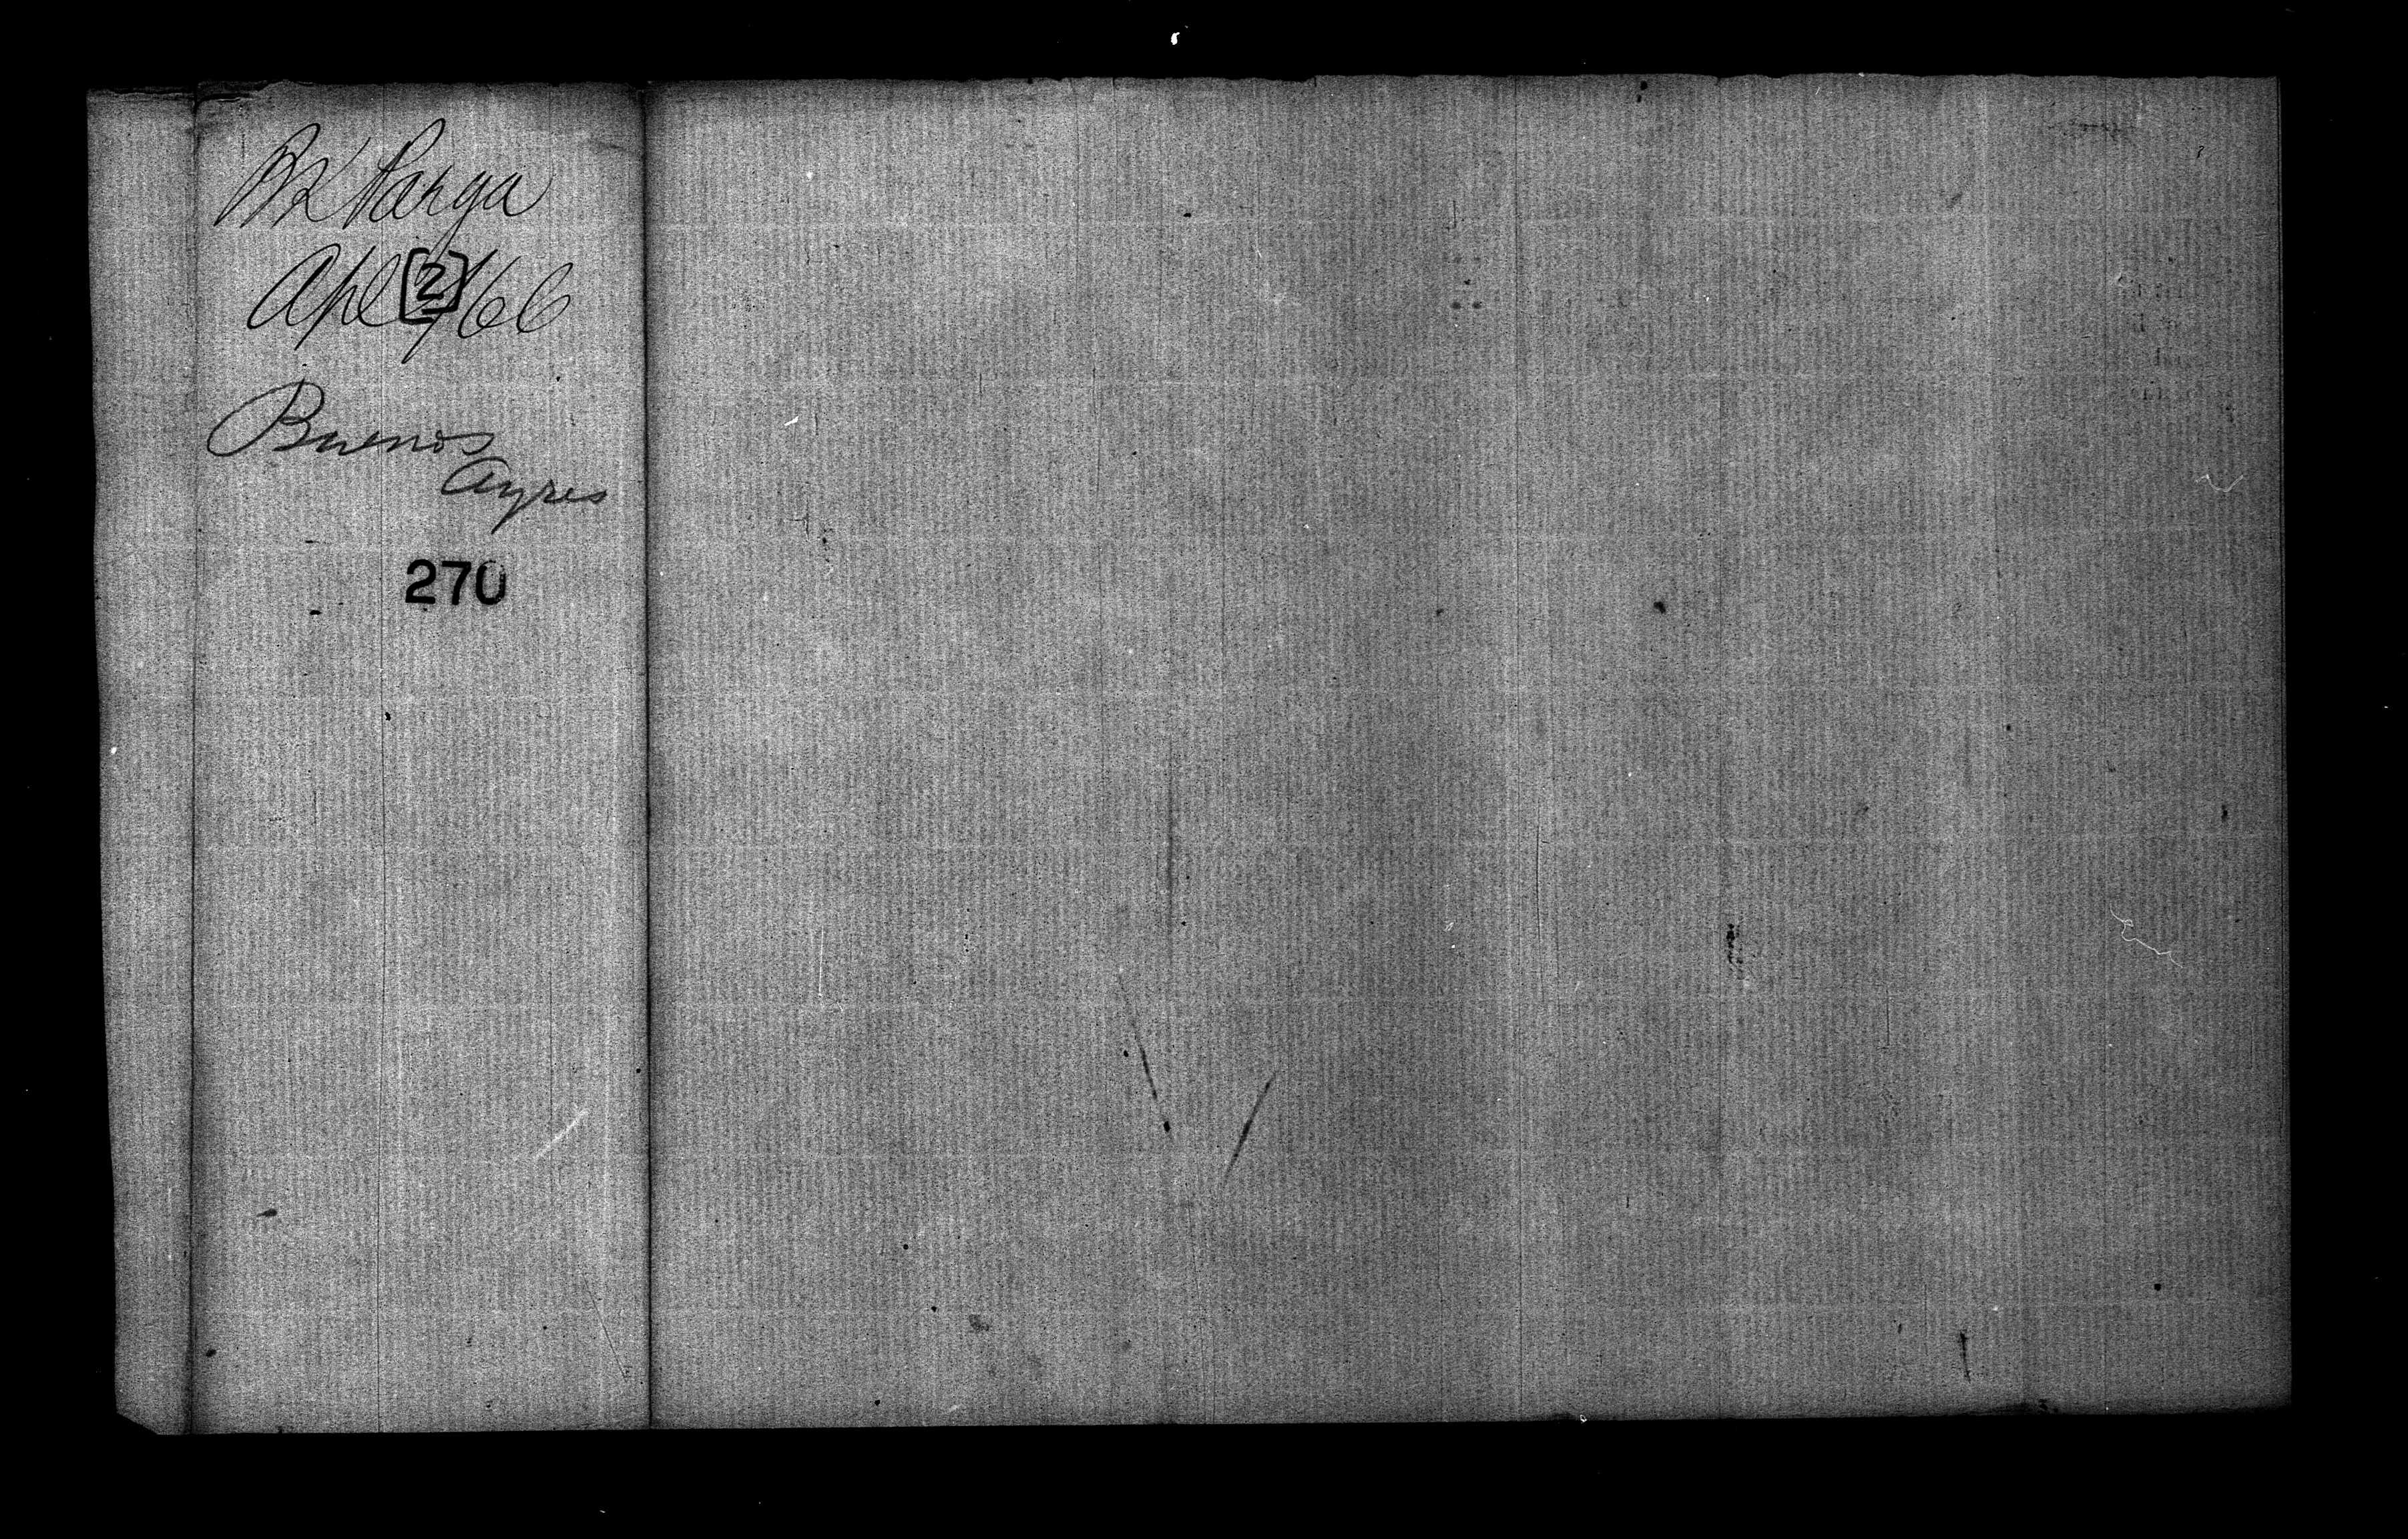 Bk Parga
Apl [2] /66
Buenos
Ayres
270